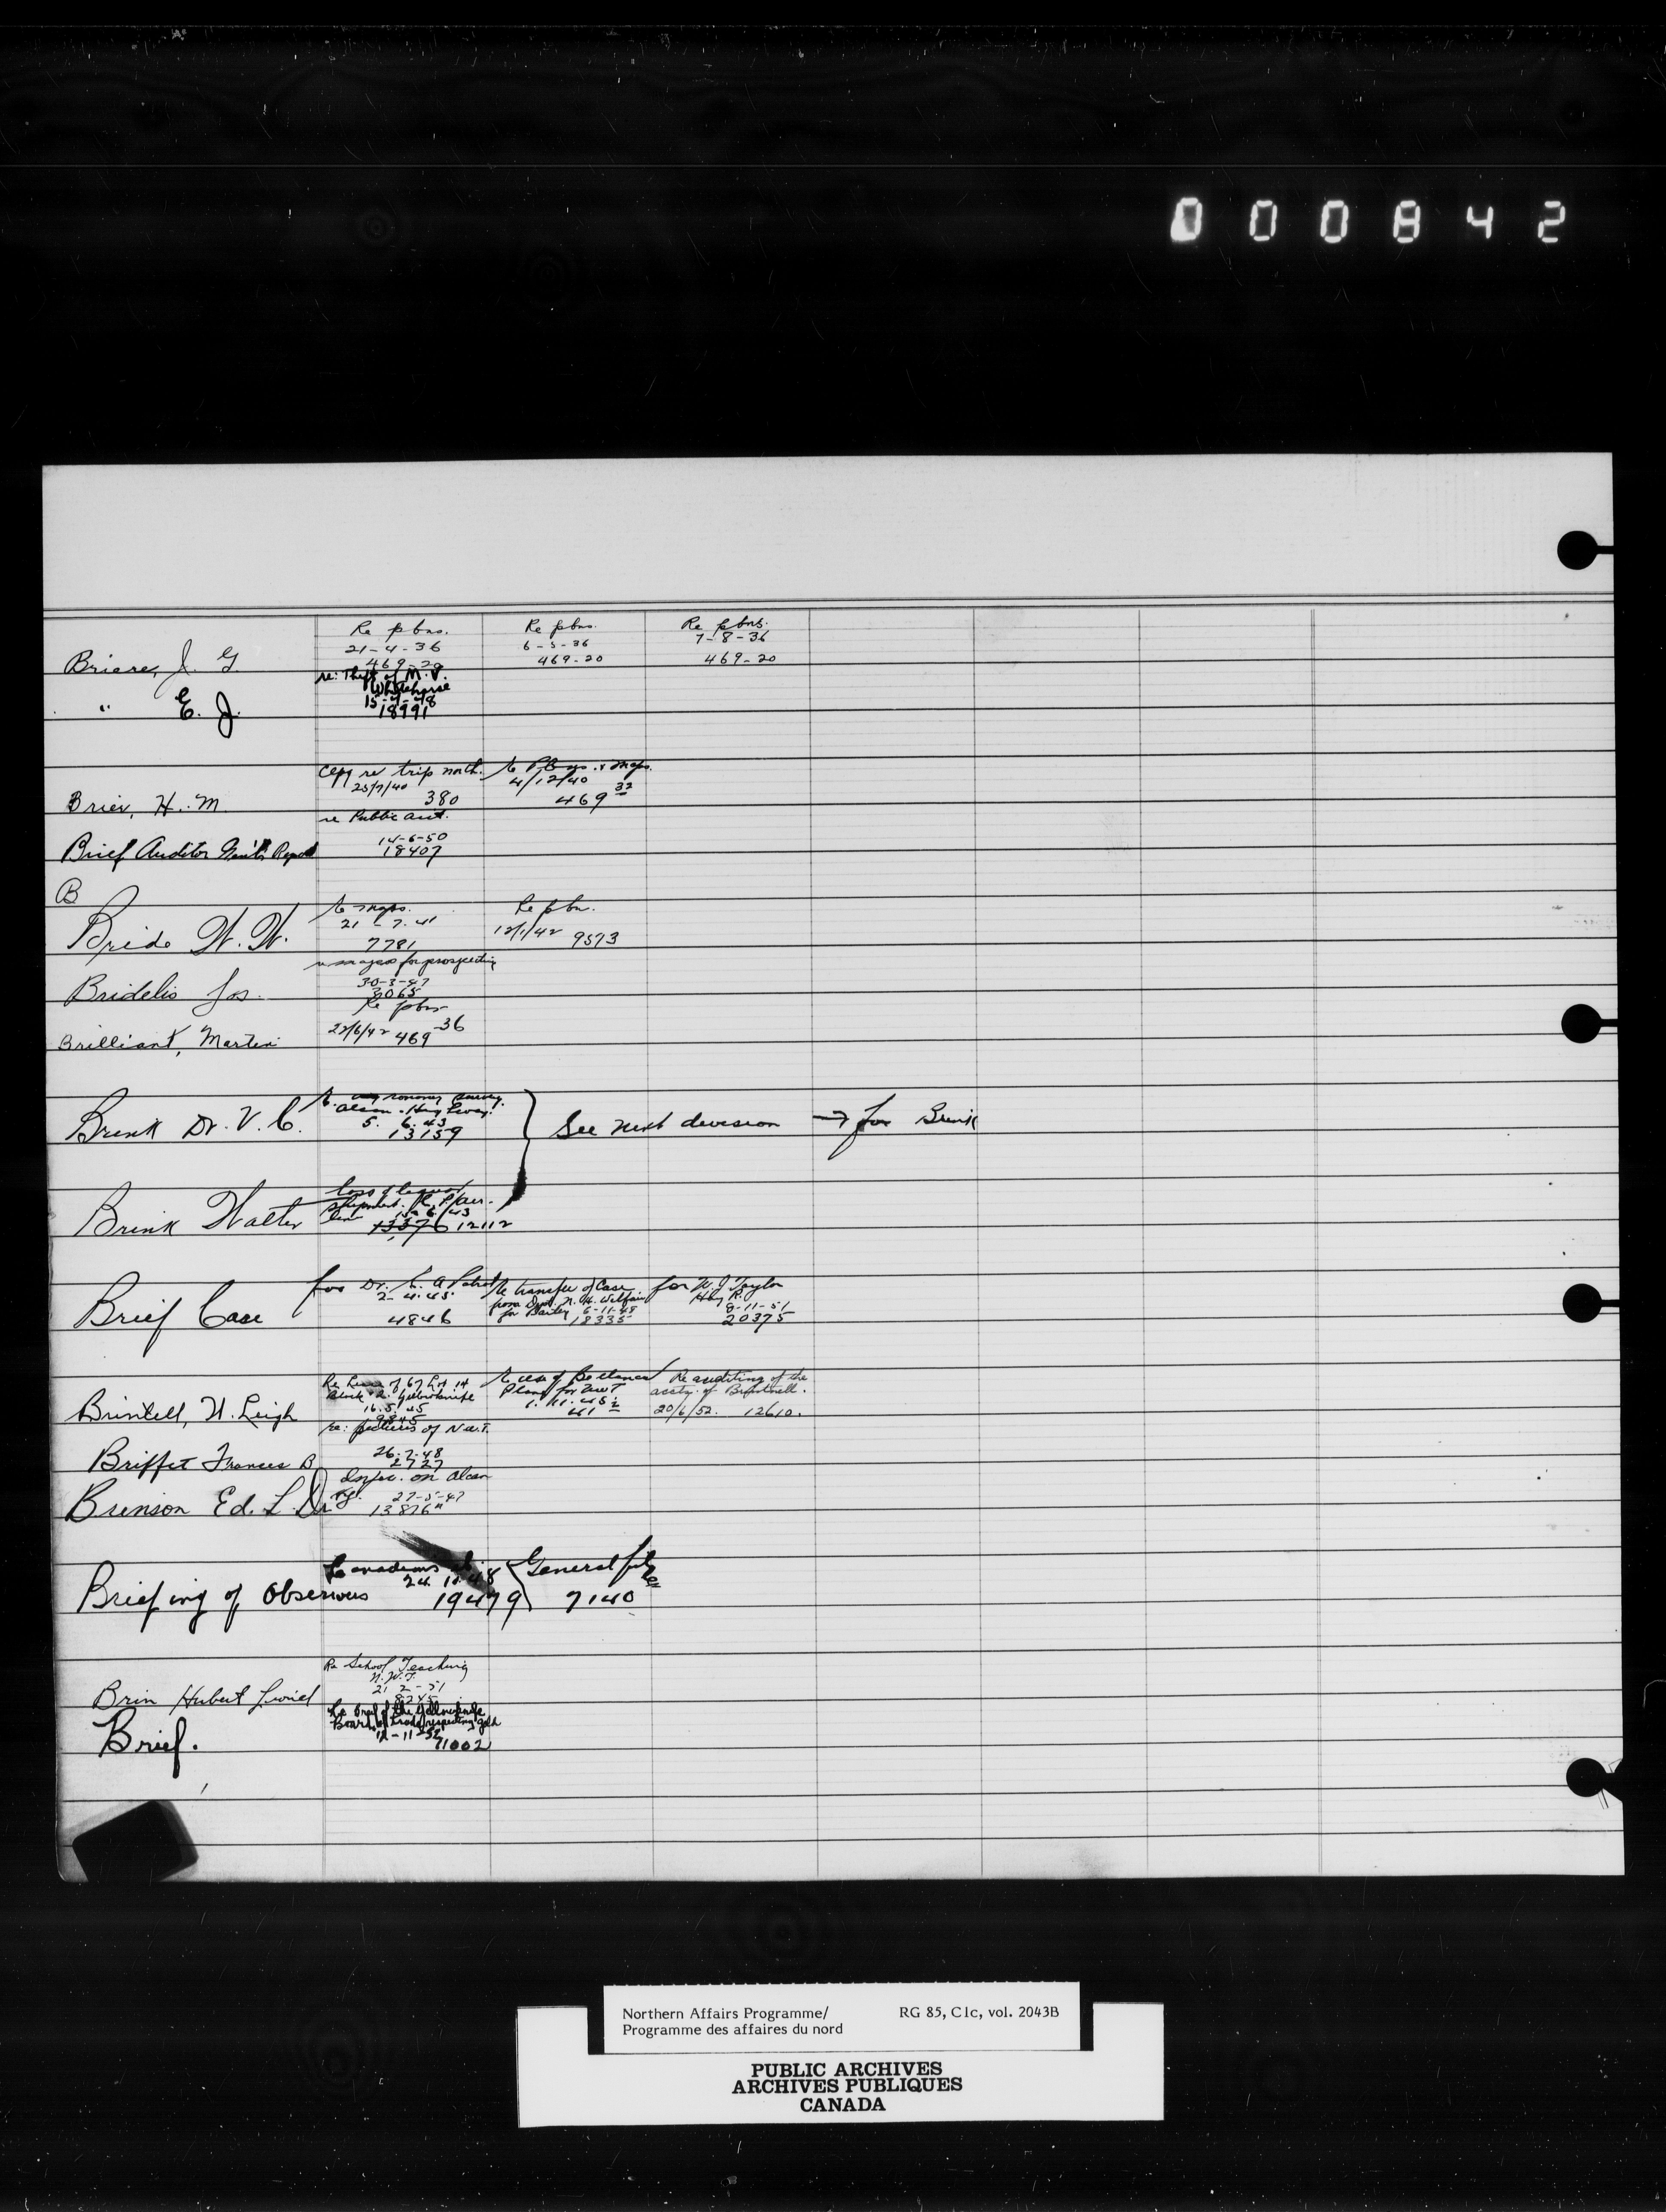 000842
Re pbns. Re pbns. Re pbns.
21-4-36 6-5-36 7-8-36
Briere, J. G. 469-20 469-20 469-20
re: Theft of M.V.
Whitehorse
15-4-48
" E. J. 18991
re trip north. & maps.
25/7/40 4/12/40
Brier, H. M. 380 469 32
re Public
14-6-50
Brief Auditor Report 18407
B
maps. Re pbn.
21-7-41 12/1/42
Bride W. W. 7781 9573
for prospecting
30-3-47
Bridelis Jos. 3065
Re pbns
22/6/42
Brilliant, Martin 469-36
Survey
5. 6. 43
Brink Dr. V. C. 13159 } See next division → for Brink
Loss of
Shipment
Brink Walter 13376 12112
for Dr. Re transfer of Case for W. J. Taylor
2-4-45. from for Bailey 6-11-48 8-11-51
Brief Case 4846 18335 20375
Re Lot 14 Re use of Re auditing of the
Block 2. Yellowknife Plane for NWT accts. of
16.5.45 20/6/52. 12610.
Brintell, N. Leigh 9845
re: pictures of N.W.T.
26-7-48
Briffet Frances B 2727
on Alcan
27-5-47
Brenson Ed. L. Dr 13876
Canadians General file
24
Briefing of Observers 19479 7140
Re School Teaching
N.W.T.
21-2-51
Brin Hubert
Re brief of the Yellowknife
Board of Trade respecting gold
12-11-52
Brief. 71002
Northern Affairs Programme/ RG 85, C1c, vol. 2043B
Programme des affaires du nord
PUBLIC ARCHIVES
ARCHIVES PUBLIQUES
CANADA